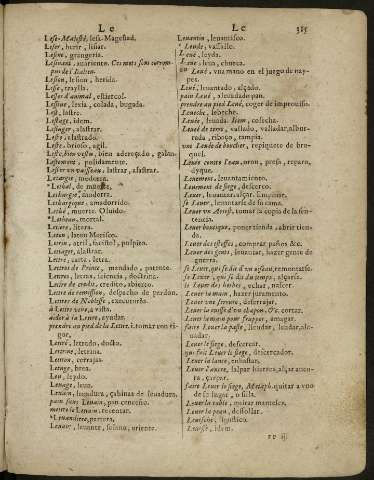 Le
Le 315
Lese-Majesté, lesa-Magestad.
Leser, herir, lisiar.
Lesine, grangeria.
Lesinant, auariento. Ces mots sont corrompus de l'Italien.
Lesion, lesion, herida.
Lesse, traylla.
Lesses d'animal, estiercol.
Lessiue, lexia, colada, bugada.
Lest, lastre.
Lestage, idem.
Lestager, alastrar.
Lesté, alastrado.
Leste, brioso, agil.
Leste, bien vestu, bien adereçado, galan.
Lestement, polidamente.
Lester vn vaisseau, lastrar, alastrar.
Letarge, modorra.
*Lethal, de muerte.
Lethargie, modorra.
Lethargique, amodorrido.
Lethé, muerte. Oluido.
*Letheau, mortal.
Letiere, litera.
Letin, latin Morisco.
Letrin, atril, facistol, pulpito.
Lettager, alastrar.
Lettre, carta, letra.
Lettres de Prince, mandado, patente.
Lettres, letras, sciencia, doctrina.
Lettre de credit, credito, abierto.
Lettre de remission, despacho de perdon.
Lettres de Noblesse, executoria.
à Lettre veuë, a vista.
aider à la Lettre, ayudar.
prendre au pied de la Lettre, i. tomar con rigor.
Lettré, letrado, docto.
Lettrine, letrina.
Leuage, brea.
Leu, leydo.
Leuage, leua.
Leuain, leuadura,
pain sans Leuain, pan cenceño.
mettre le Leuain, recentar.
*Leuandiere, partera.
Leuant, leuante, solano, oriente.
Leuantin, leuantisco.
*Leude, vassallo.
Leuë, leyda.
Leué, leua, chueca.
vn Leué, vna mano en el juego de naypes.
Leué, leuantado, alçado.
pain Leué, aleudado pan.
prendre au pied Leué, coger de improuiso.
Leuesche, lebeche.
Leuée, leuada. Item, cosecha.
Leueé de terre, vallado, valladar, albarrada, ribaço, rampia.
vne Leuée de bouclier, repiquete de broquel.
Leuée contre l'eau, oron, presa, reparo, dyque.
Leuement, leuantamiento.
Leuement de siege, descerco.
Leuer, leuantar, alçar. Empinar.
se Leuer, leuantarse de su cama.
Leuer vn Arrest, tomar la copia de la sentencia.
Leuer boutique, poner tienda, abrir tienda.
Leuer des estoffes, comprar paños &c.
Leuer des gents, leuantar, hazer gente de guerra.
se Leuer, qui se dit d'vn oiseau, remontarse.
se Leuer, qui se dit du temps, alçarse.
se Leuer des herbes, echar, nascer.
Leuer la main, hazer juramento.
Leuer vne serrure, desterrajar.
Leuer la cuisse d'vn chapon, &c. cortar.
Leuer la main pour frapper, amagar.
faire Leuer la paste, lleudar, leudar, aleudar.
Leuer le siege, descercar.
qui fait Leuer le siege, descercador.
Leuer la lance, enhiestar.
Leuer l'ancre, çarpar hierros, alçar ancora, çarpar.
faire Leuer le siege, Metaph. quitar a vno de su lugar, o silla.
Leuer la table, quitar manteles.
Leuer la peau, dessollar.
Leuesche, ligustico.
Leuesse, idem.
rr ij